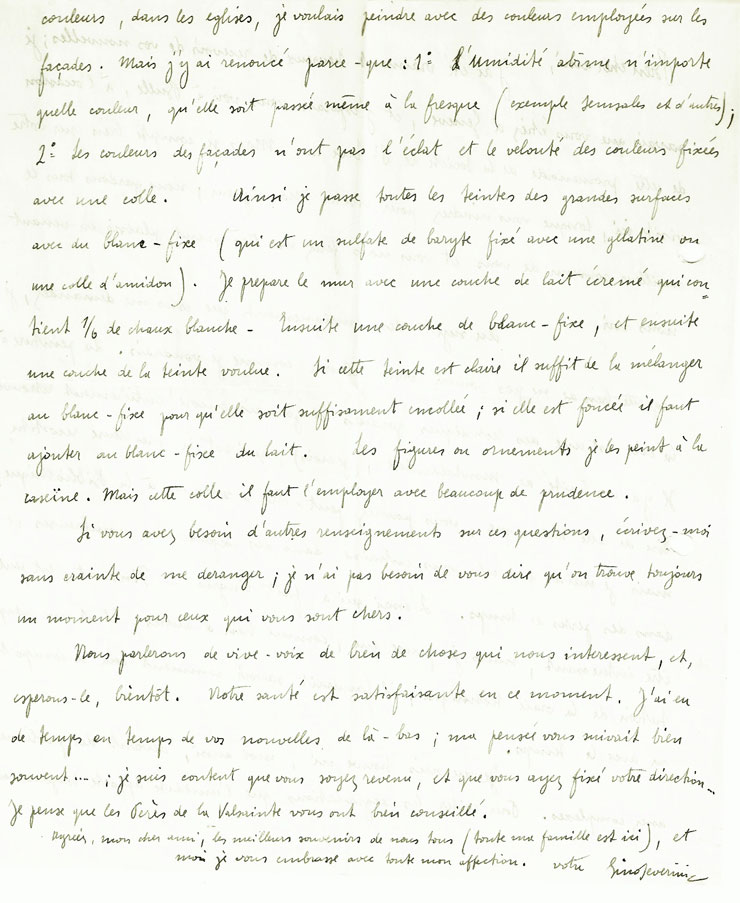 couleurs, dans les eglises, je voulais peindre avec des couleurs employées sur les
façades. Mais j'y ai renoncé parce-que : 1º L'umidité abîme n'importe
quelle couleur, qu'elle soit passée même à la fresque (exemple Semsales et d'autres);
2º Les couleurs des façades n'ont pas l'éclat et le velouté des couleurs fixées
avec une colle. Ainsi je passe toutes les teintes des grandes surfaces
avec du blanc-fixe (qui est un sulfate de baryte fixé avec une gélatine ou
une colle d'amidon). Je prepare le mur avec une couche de lait écremé qui con-
tient 1/6 de chaux blanche - Ensuite une couche de blanc-fixe, et ensuite
une couche de la teinte voulue. Si cette teinte est claire il suffit de la mélanger
au blanc-fixe pour qu'elle soit suffisament encollée; si elle est foncée il faut
ajouter au blanc-fixe du lait. Les figures ou ornements je les peint à la
caseïne. Mais cette colle il faut l'employer avec beaucoup de prudence.
Si vous avez besoin d'autres renseignements sur ces questions, écrivez-moi
sans crainte de me deranger; je n'ai pas besoin de vous dire qu'on trouve toujours
un moment pour ceux qui vous sont chers.
Nous parlerons de vive-voix de bien de choses qui nous interessent, et,
esperons-le, bientôt. Notre santé est satisfaisante en ce moment. J'ai eu
de temps en temps de vos nouvelles de là-bas; ma pensée vous suivait bien
souvent...; je suis content que vous soyez revenu, et que vous ayez fixé votre direction_
Je pense que les Pères de la Valsainte vous ont bien conseillé.
Agréer, mon cher ami, les meilleurs souvenirs de nous tous (toute ma famille est ici), et
moi je vous embrasse avec toute mon affection. votre Gino Severini